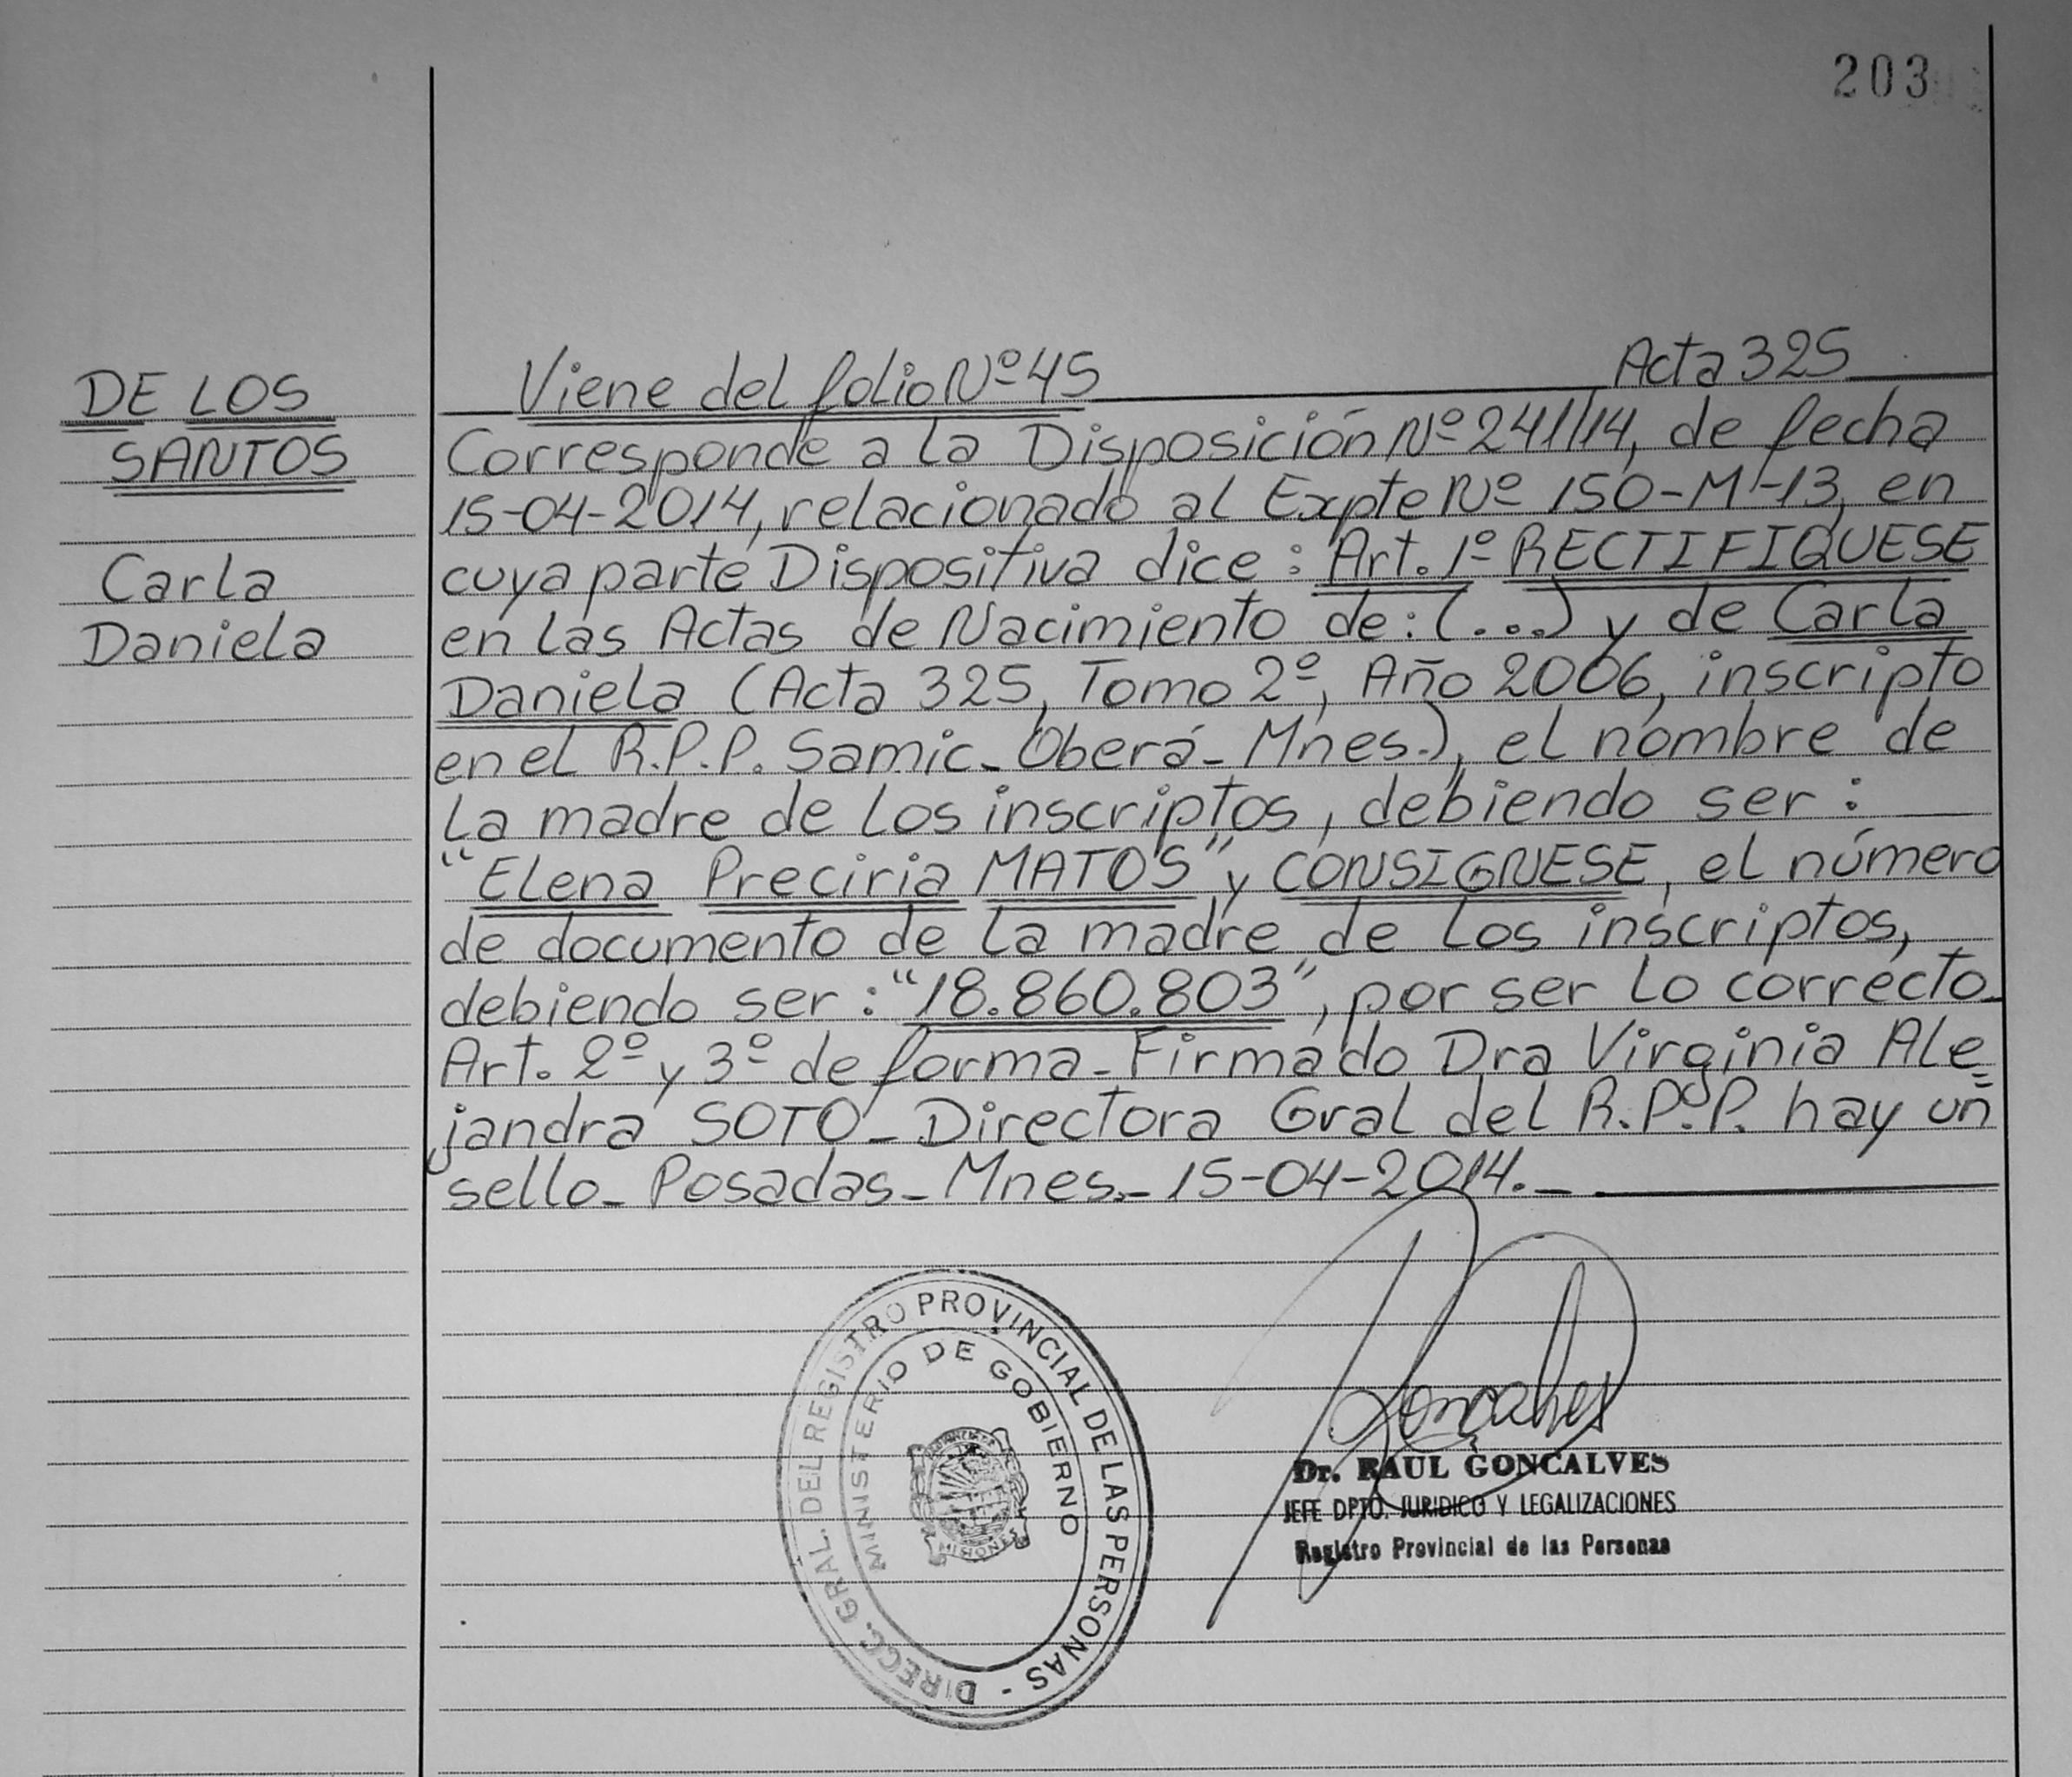 203
DE LOS
SANTOS
Carla
Daniela
Viene del folio Nº 45 Acta 325
Corresponde a la Disposición Nº 241/14, de fecha
15-04-2014, relacionado al Expte Nº 150-M-13, en
cuya parte Dispositiva dice: Art. 1º RECTIFIQUESE
en las Actas de Nacimiento de: (...) y de Carla
Daniela (Acta 325, Tomo 2º, Año 2006, inscripto
en el R.P.P. Samic_ Oberá_ Mnes.), el nombre de
la madre de los inscriptos, debiendo ser:
"Elena Preciria MATOS" y CONSIGNESE, el número
de documento de la madre de los inscriptos,
debiendo ser: "18.860.803", por ser lo correcto_
Art. 2º y 3º de forma_ Firmado Dra Virginia Ale=
jandra SOTO_ Directora Gral del R.P.P. hay un
sello_ Posadas_ Mnes._ 15-04-2014._
DIRECC. GRAL. DEL REGISTRO PROVINCIAL DE LAS PERSONAS -
MINISTERIO DE GOBIERNO
MISIONES
Goncalves
Dr. RAUL GONCALVES
JEFE DPTO. JURIDICO Y LEGALIZACIONES
Registro Provincial de las Personas